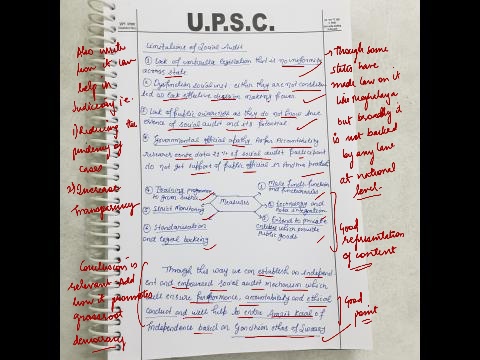 U.P.S.C.
Limitations of Social Audit
① Lack of legislation that is no uniformity
across state
② Dysfunction social unit either they are not constitu
ted or lack effective decision making power
③ Lack of public awareness as they do not know
existence of social audit and its potential
④ Governmental official apathy Accountability
research centre data 27% of social audit participant
do not get support of public official in Andhra pradesh
④ Training programme
to gram public
⑤ Strict Monitoring
⑥ Standarisation
and legal backing
Measures
① More funds function
and functionaries
② technology and
Data integration
③ Extend to private
entities which provide
public goods
Through this way we can establish an independ
ent and empowered social audit mechanism which
will ensure performance, accountability and ethical
conduct and will help to entire Amrit Kaal of
Independence based on Gandhian
Also write
how it
help in
Judiciary i.e.
1) Reducing the
pendency of
cases
2) Increase
Transparency
Conclusion is
relevant Add
how it promotes
grassroot
democracy
Though some
states have
made law on it
like Meghalaya
but broadly it
is not backed
by any law
at national
level
Good
representation
of content
Good
point